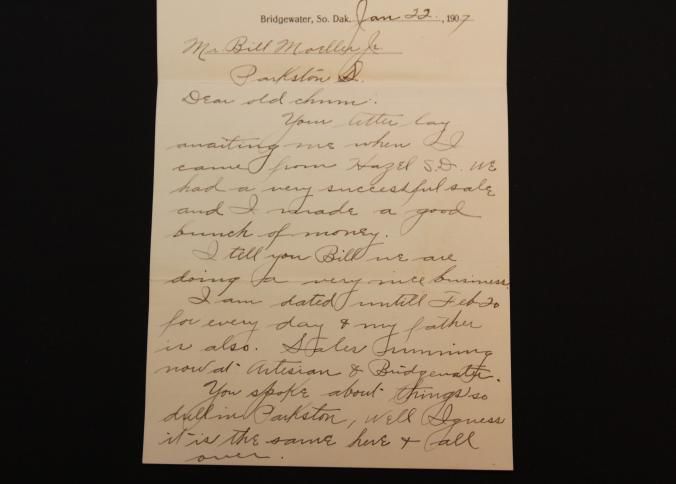 Bridgewater, So. Dak. Jan 22, 1907
Mr. Bill Moeller Jr.
Parkston S.
Dear old chum:
Your letter lay
awaiting me when I
came from Hazel S.D. We
had a very successful sale
and I made a good
bunch of money.
I tell you Bill we are
doing a very nice business.
I am dated untill Feb 20
for every day & my father
is also. Sales running
now at Artesian & Bridgewater.
You spoke about things so
dull in Parkston, well I guess
it is the same here & all
over.